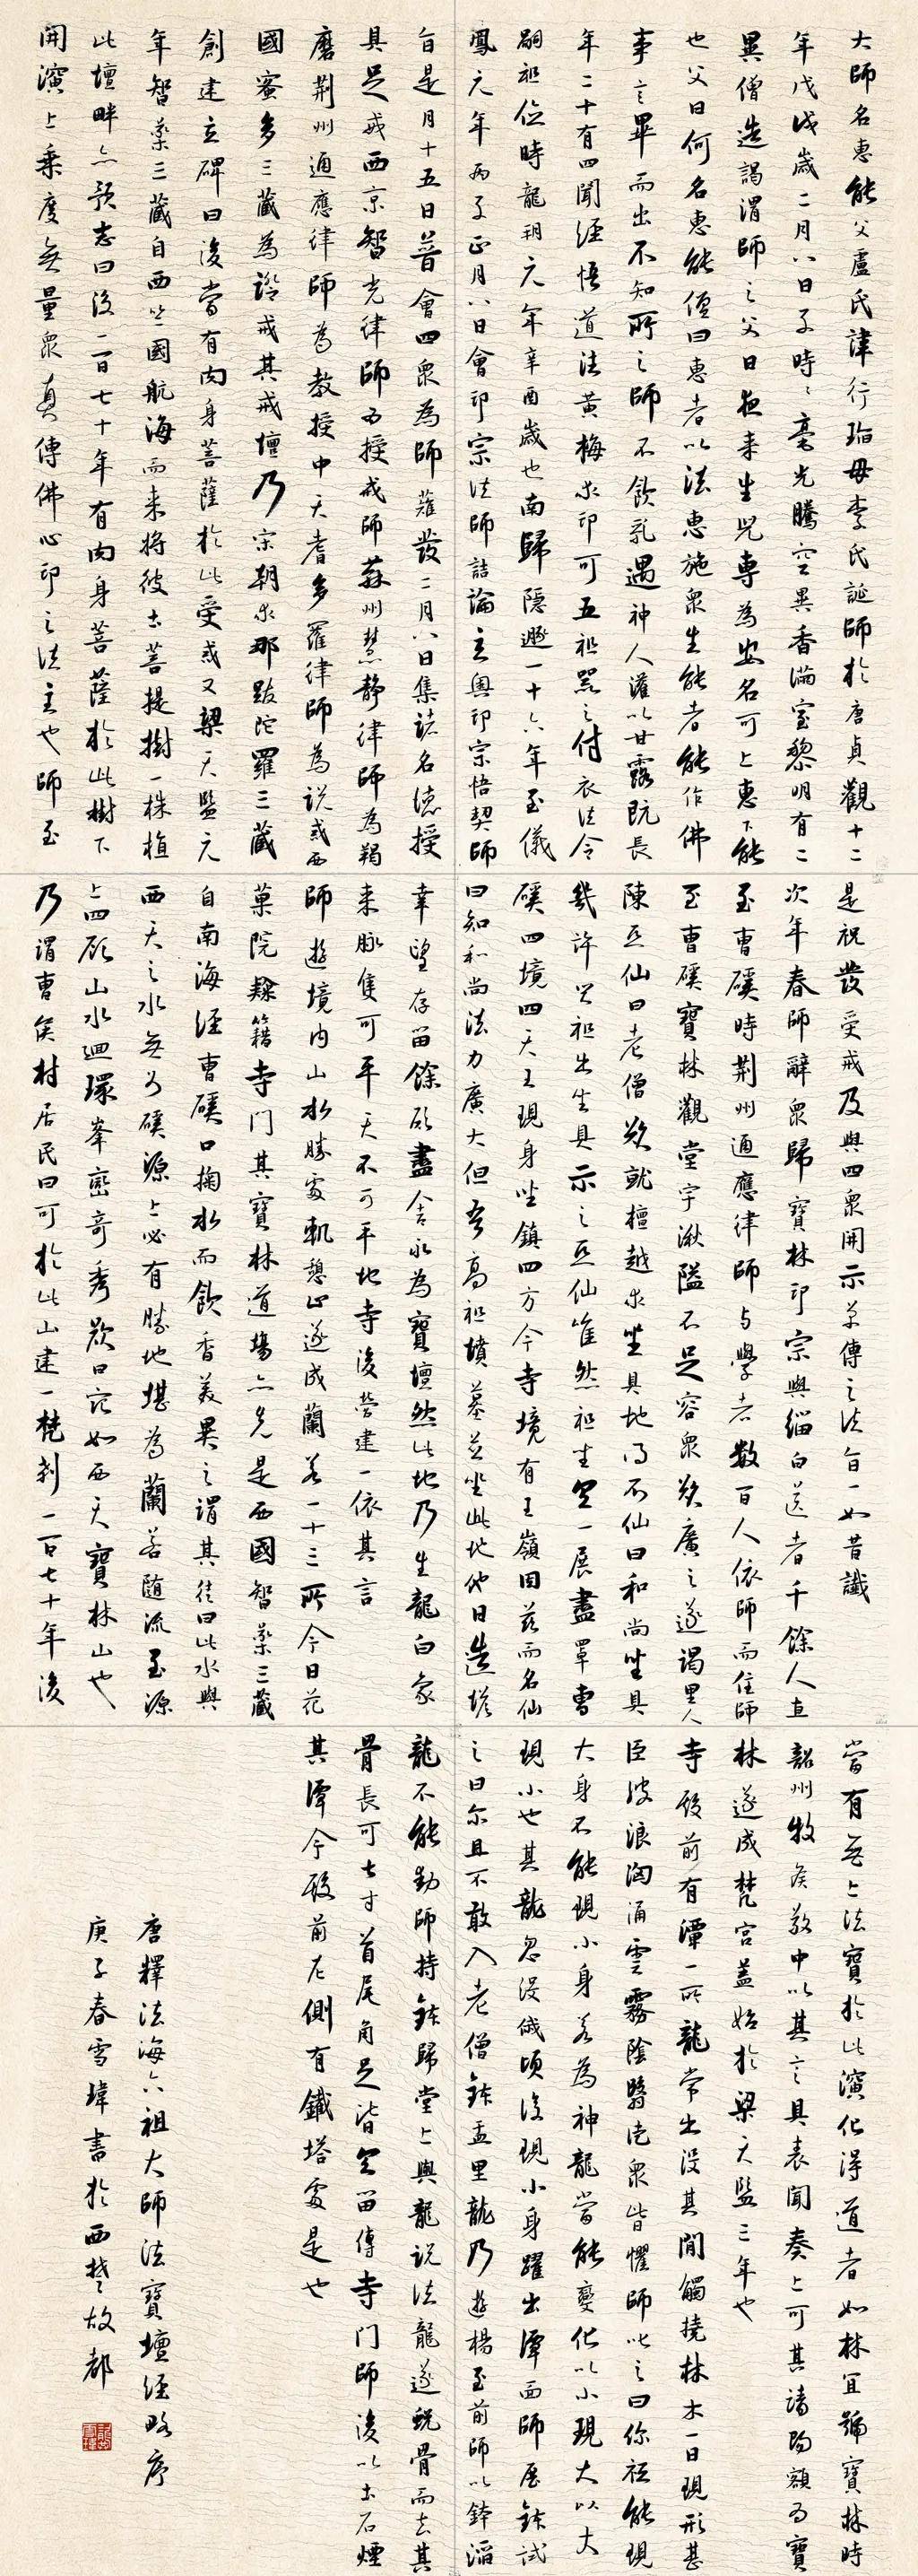 大師名惠能父盧氏諱行瑫母李氏誕師於唐貞觀十二
年戊戌歲二月八日子時時毫光騰空異香滿室黎明有二
異僧造謁謂師之父曰夜來生兒專為安名可上惠下能
也父曰何名惠能僧曰惠者以法惠施眾生能者能作佛
事言畢而出不知所之師不飲乳遇神人灌以甘露既長
年二十有四聞經悟道法黃梅求印可五祖器之付衣法令
嗣祖位時龍朔元年辛酉歲也南歸隱遯一十六年至儀
鳳元年丙子正月八日會印宗法師詰論玄奧印宗悟契師
旨是月十五日普會四眾為師薙發二月八日集諸名德授
具足戒西京智光律師為授戒師蘇州慧靜律師為羯
磨荊州通應律師為教授中天耆多羅律師為說戒西
國蜜多三藏為證戒其戒壇乃宋朝求那跋陀羅三藏
創建立碑曰後當有肉身菩薩於此受戒又梁天監元
年智藥三藏自西竺國航海而來將彼土菩提樹一株植
此壇畔亦預志曰後一百七十年有肉身菩薩於此樹下
開演上乘度無量眾真傳佛心印之法主也師至
是祝發受戒及與四眾開示單傳之法旨一如昔讖
次年春師辭眾歸寶林印宗與緇白送者千餘人直
至曹磎時荊州通應律師與學者數百人依師而住師
至曹磎寶林觀堂宇湫隘不足容眾欲廣之遂謁里人
陳亞仙曰老僧欲就檀越求坐具地得不仙曰和尚坐具
幾許祖出坐具示之亞仙唯然祖坐具一展盡罩曹
磎四境四天王現身坐鎮四方今寺境有王嶺因茲而名仙
曰知和尚法力廣大但吾高祖墳墓並坐此地他日造塔
幸望存留餘願盡舍永為寶壇然此地乃生龍白象
來脈隻可平天不可平地寺後營建一依其言
師遊境內山水勝處輒憩止遂成蘭若一十三所今日花
菓院隸籍寺門其寶林道場亦先是西國智藥三藏
自南海經曹磎口掬水而飲香美異之謂其徒曰此水與
西天之水無別磎源上必有勝地堪為蘭若隨流至源
上四顧山水迴環峯巒奇秀歎曰宛如西天寶林山也
乃謂曹侯村居民曰可於此山建一梵剎一百七十年後
當有無上法寶於此演化得道者如林宜號寶林時
韶州牧侯敬中以其言具表聞奏上可其請賜額為寶
林遂成梵宮蓋始於梁天監三年也
寺殿前有潭一所龍常出沒其間觸撓林木一日現形甚
巨波浪洶湧雲霧陰翳徒眾皆懼師叱之曰你祇能現
大身不能現小身若為神龍當能變化以小現大以大
現小也其龍忽沒俄頃復現小身躍出潭面師展鉢試
之曰尔且不敢入老僧鉢盂里龍乃遊揚至前師以鉢滔
龍不能動師持鉢歸堂上與龍說法龍遂蛻骨而去其
骨長可七寸首尾角足皆具留傳寺門師後以土石煙
其潭今殿前左側有鐵塔處是也
唐釋法海六祖大師法寶壇經略序
庚子春雪瑋書於西楚故都